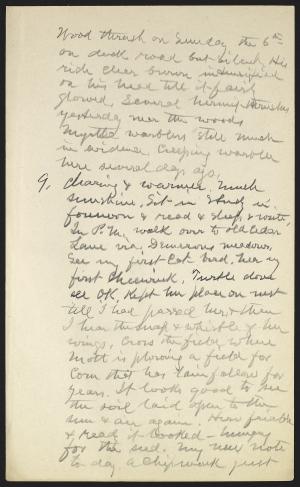 Wood thrush on Sunday the 6th
on dark road but silent. His
rich clear brown intensified
on his head till it fairly
glowed. Several hermit thrushes
yesterday near the woods
Myrtle warblers still much
in evidence. Creeping warbler
here several days ago,
9, Clearing & warmer. Much
sunshine, Sit in Study in
forenoon & read & sleep & write,
In P.M. walk over to old Cedar
Lane via. meadows,
See my first Cat bird, hear my
first Chewink, Turtle dove
all OK. Kept her place on nest
till I had passed her, & then
I hear the snap & whistle of her
wings, Cross the field where
Mott is plowing a field for
Corn that has lain fallow for
years. It looks good to see
the soil laid open to the
sun & air again. How friable
& ready it looked - hungry
for the seed. My new note
to day. A Chipmunk just